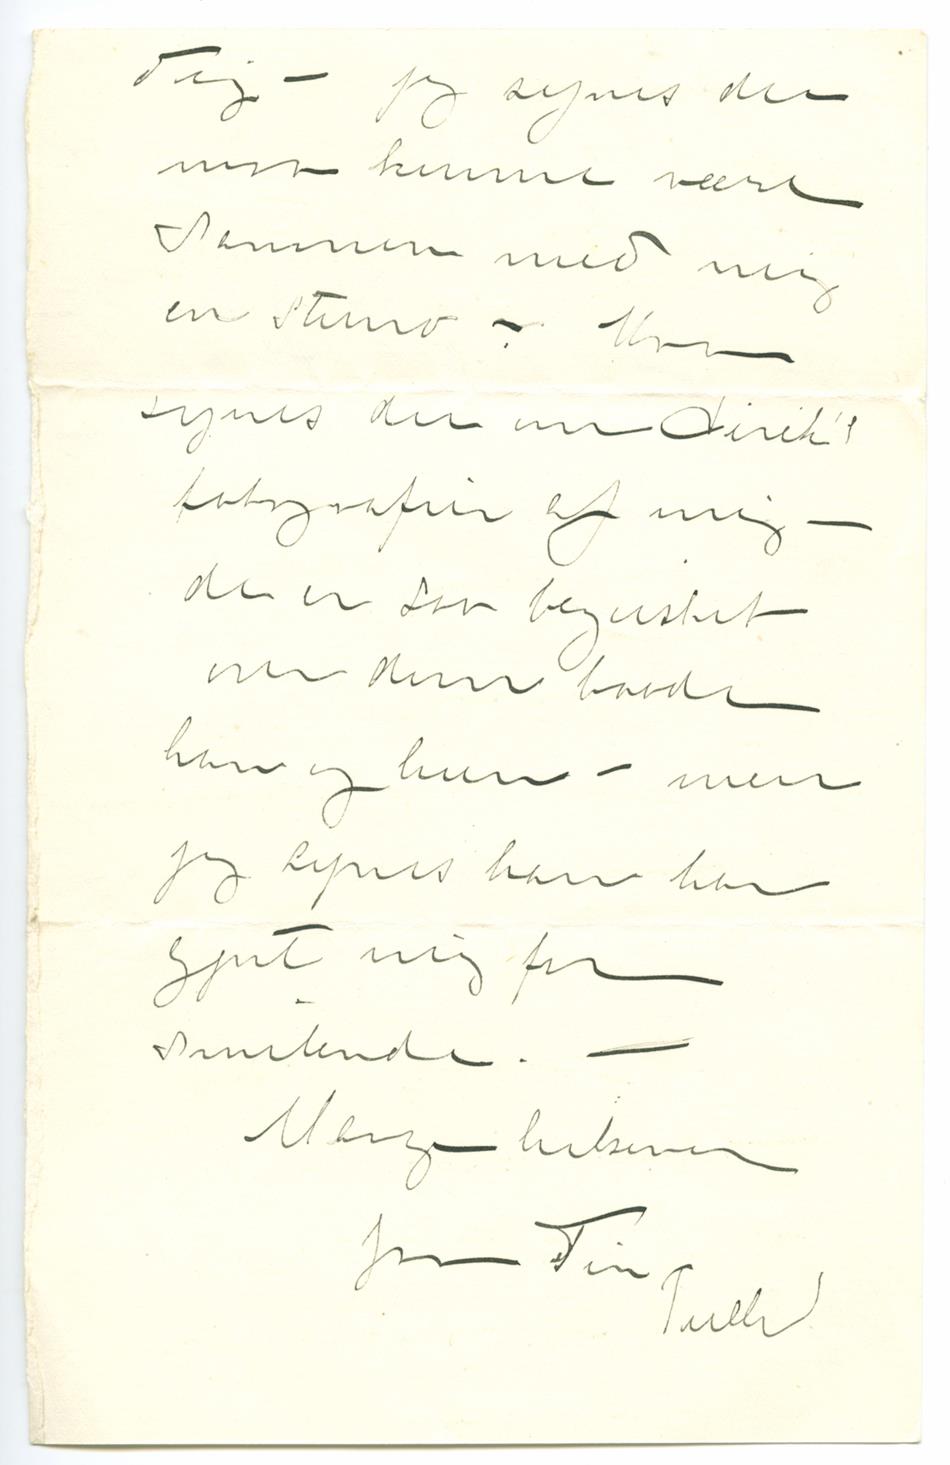 Dig — jeg synes du
maa kunne være
sammen med mig
en stund —. Hvad
synes du om Dirik's
fotografier af mig —
de er saa begeistret
over dem baade
han og hun — men
jeg synes han har
gjort mig for
smilende. —
Mange hilsener
fra Din
Tulla